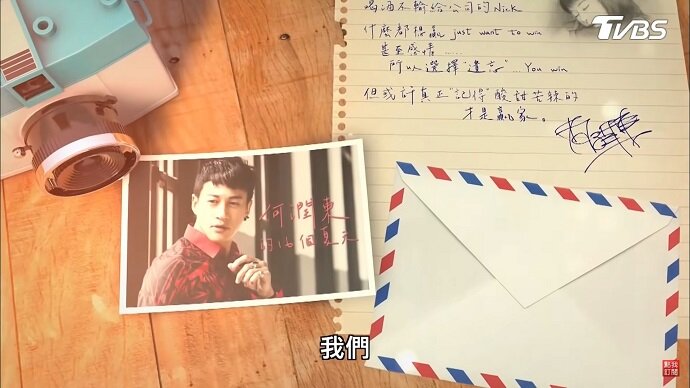 喝酒不輸給公司的Nick
什麼都得贏 just want to win
甚至感情......
所以選擇"遺忘"...You win
但或許真正"記得"酸甜苦辣的
才是贏家。
TVBS
何潤東
的16個夏天
我們
點我
訂閱